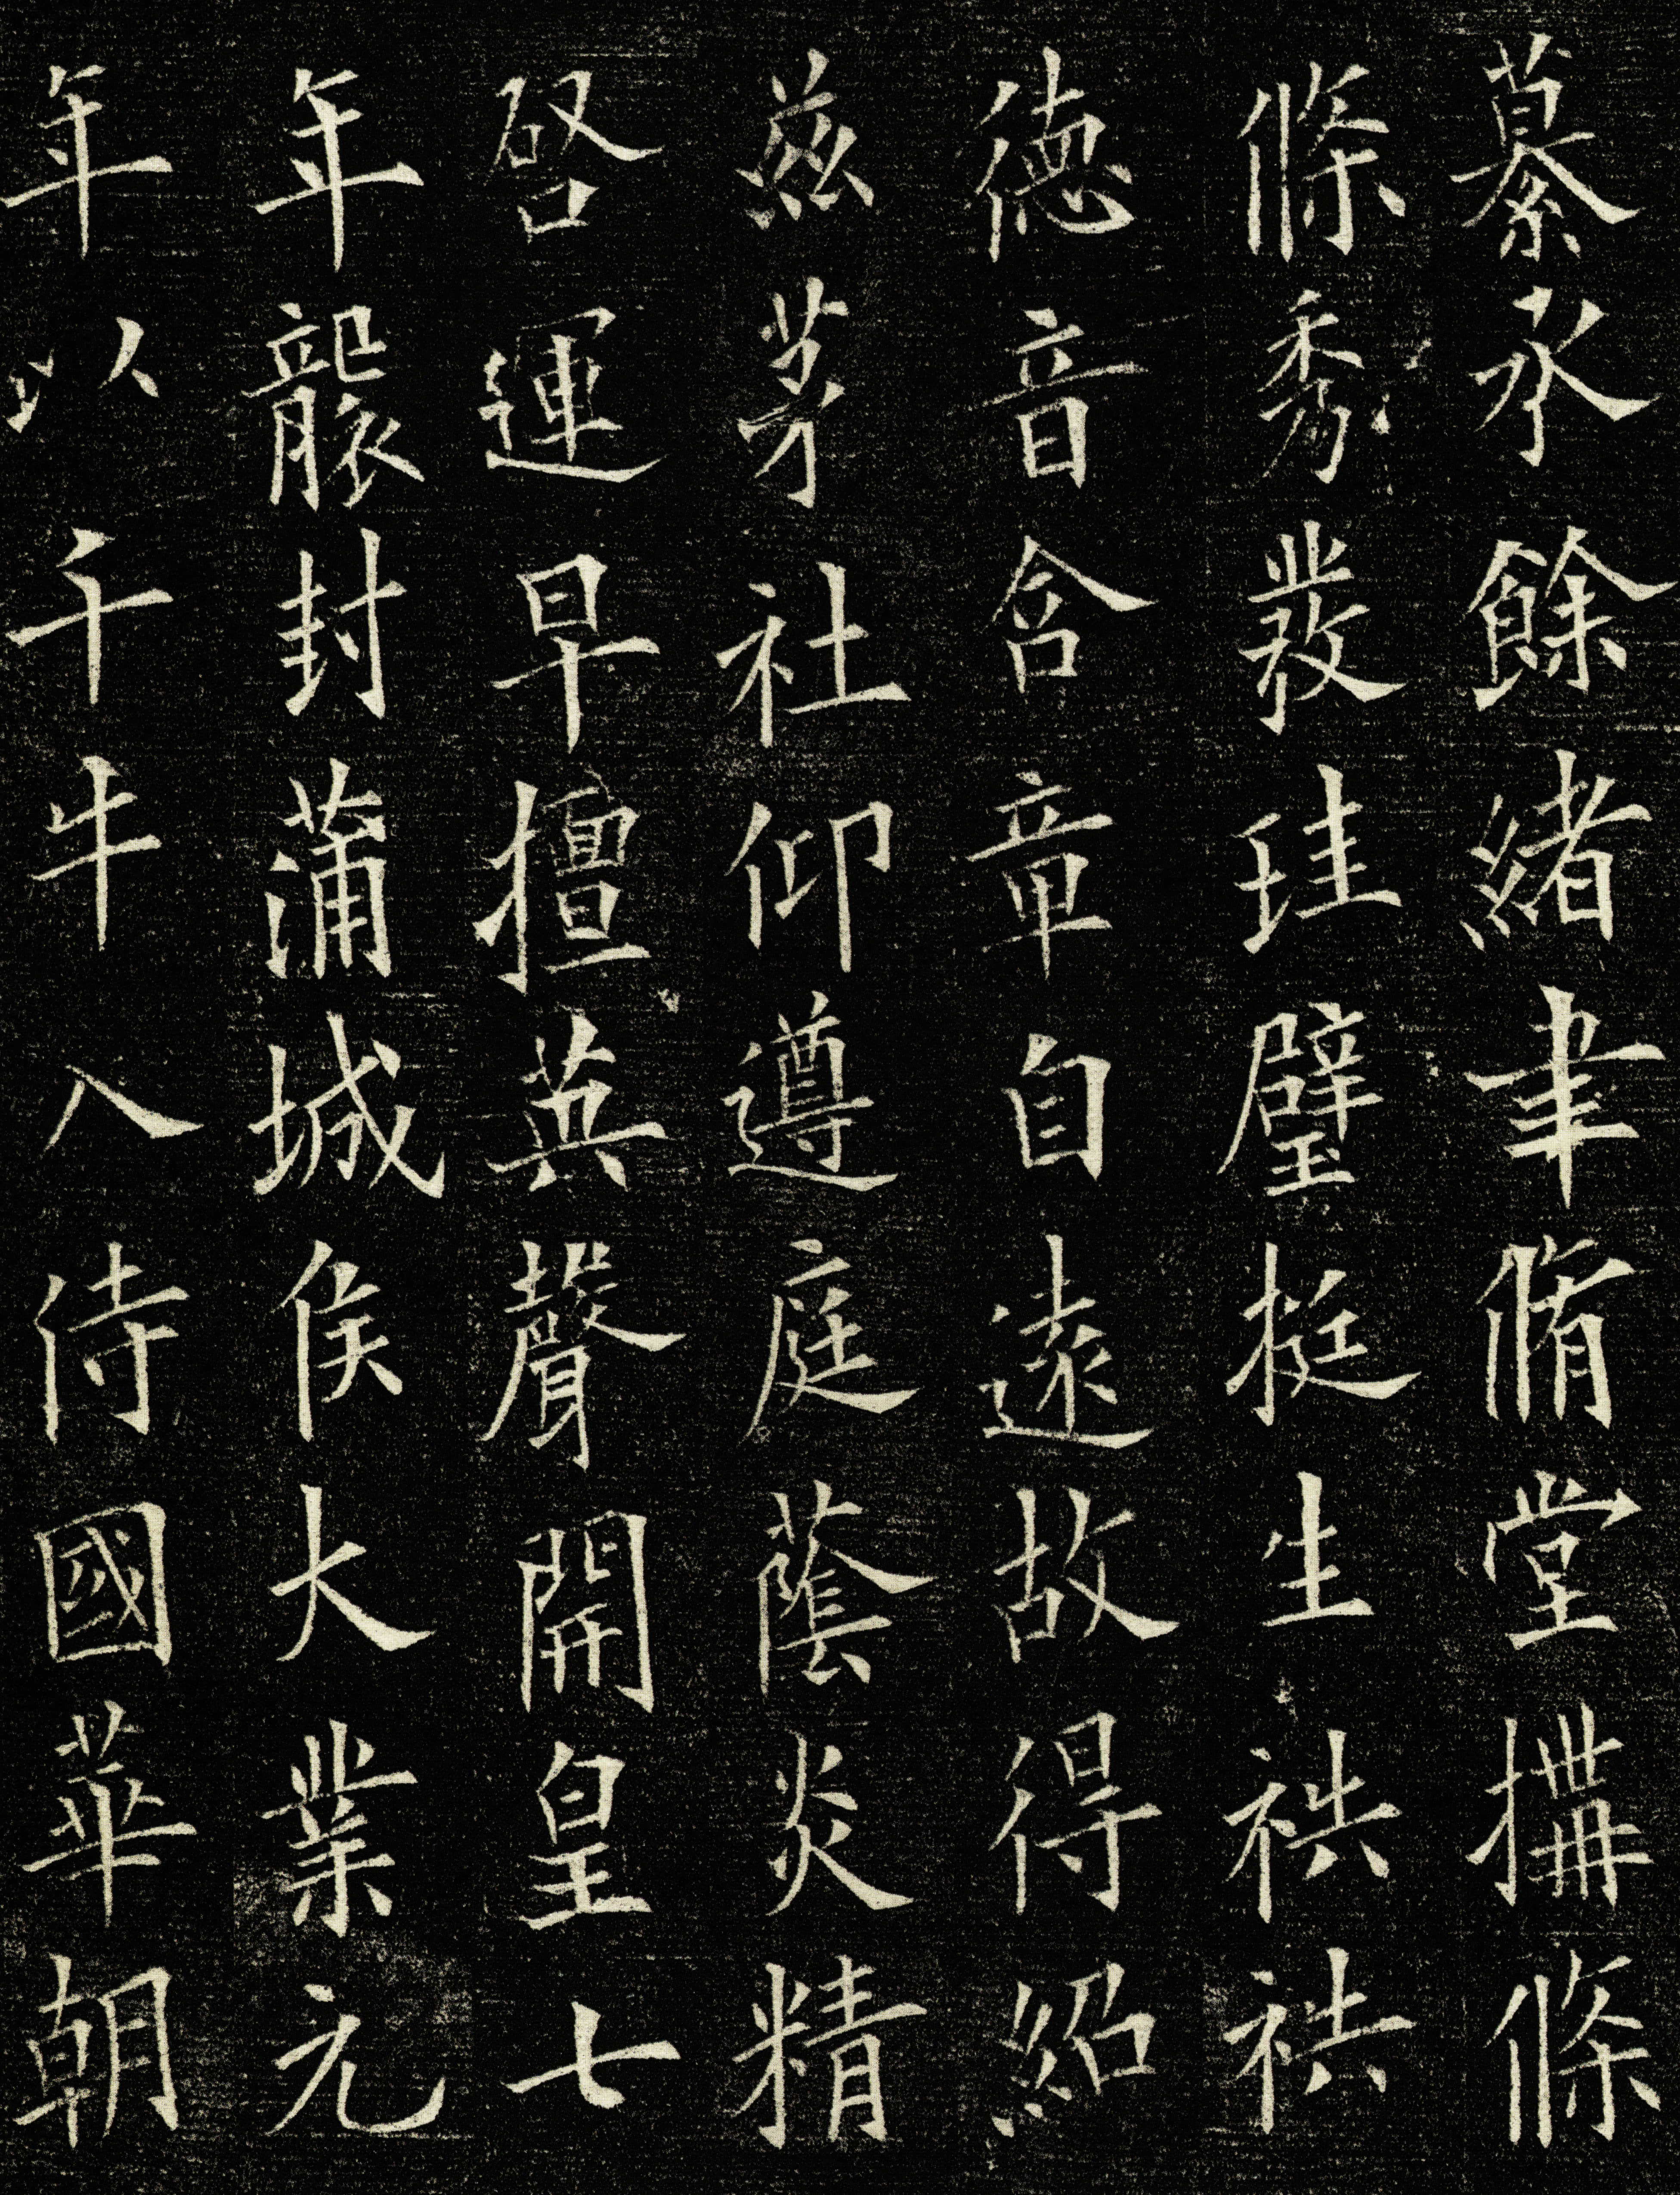 纂承餘緒聿脩堂構條
條秀發珪璧挺生祑祑
德音含章自遠故得紹
茲茅社仰遵庭蔭炎精
啓運早擅英聲開皇七
年襲封蒲城侯大業元
年以千牛八侍國華朝